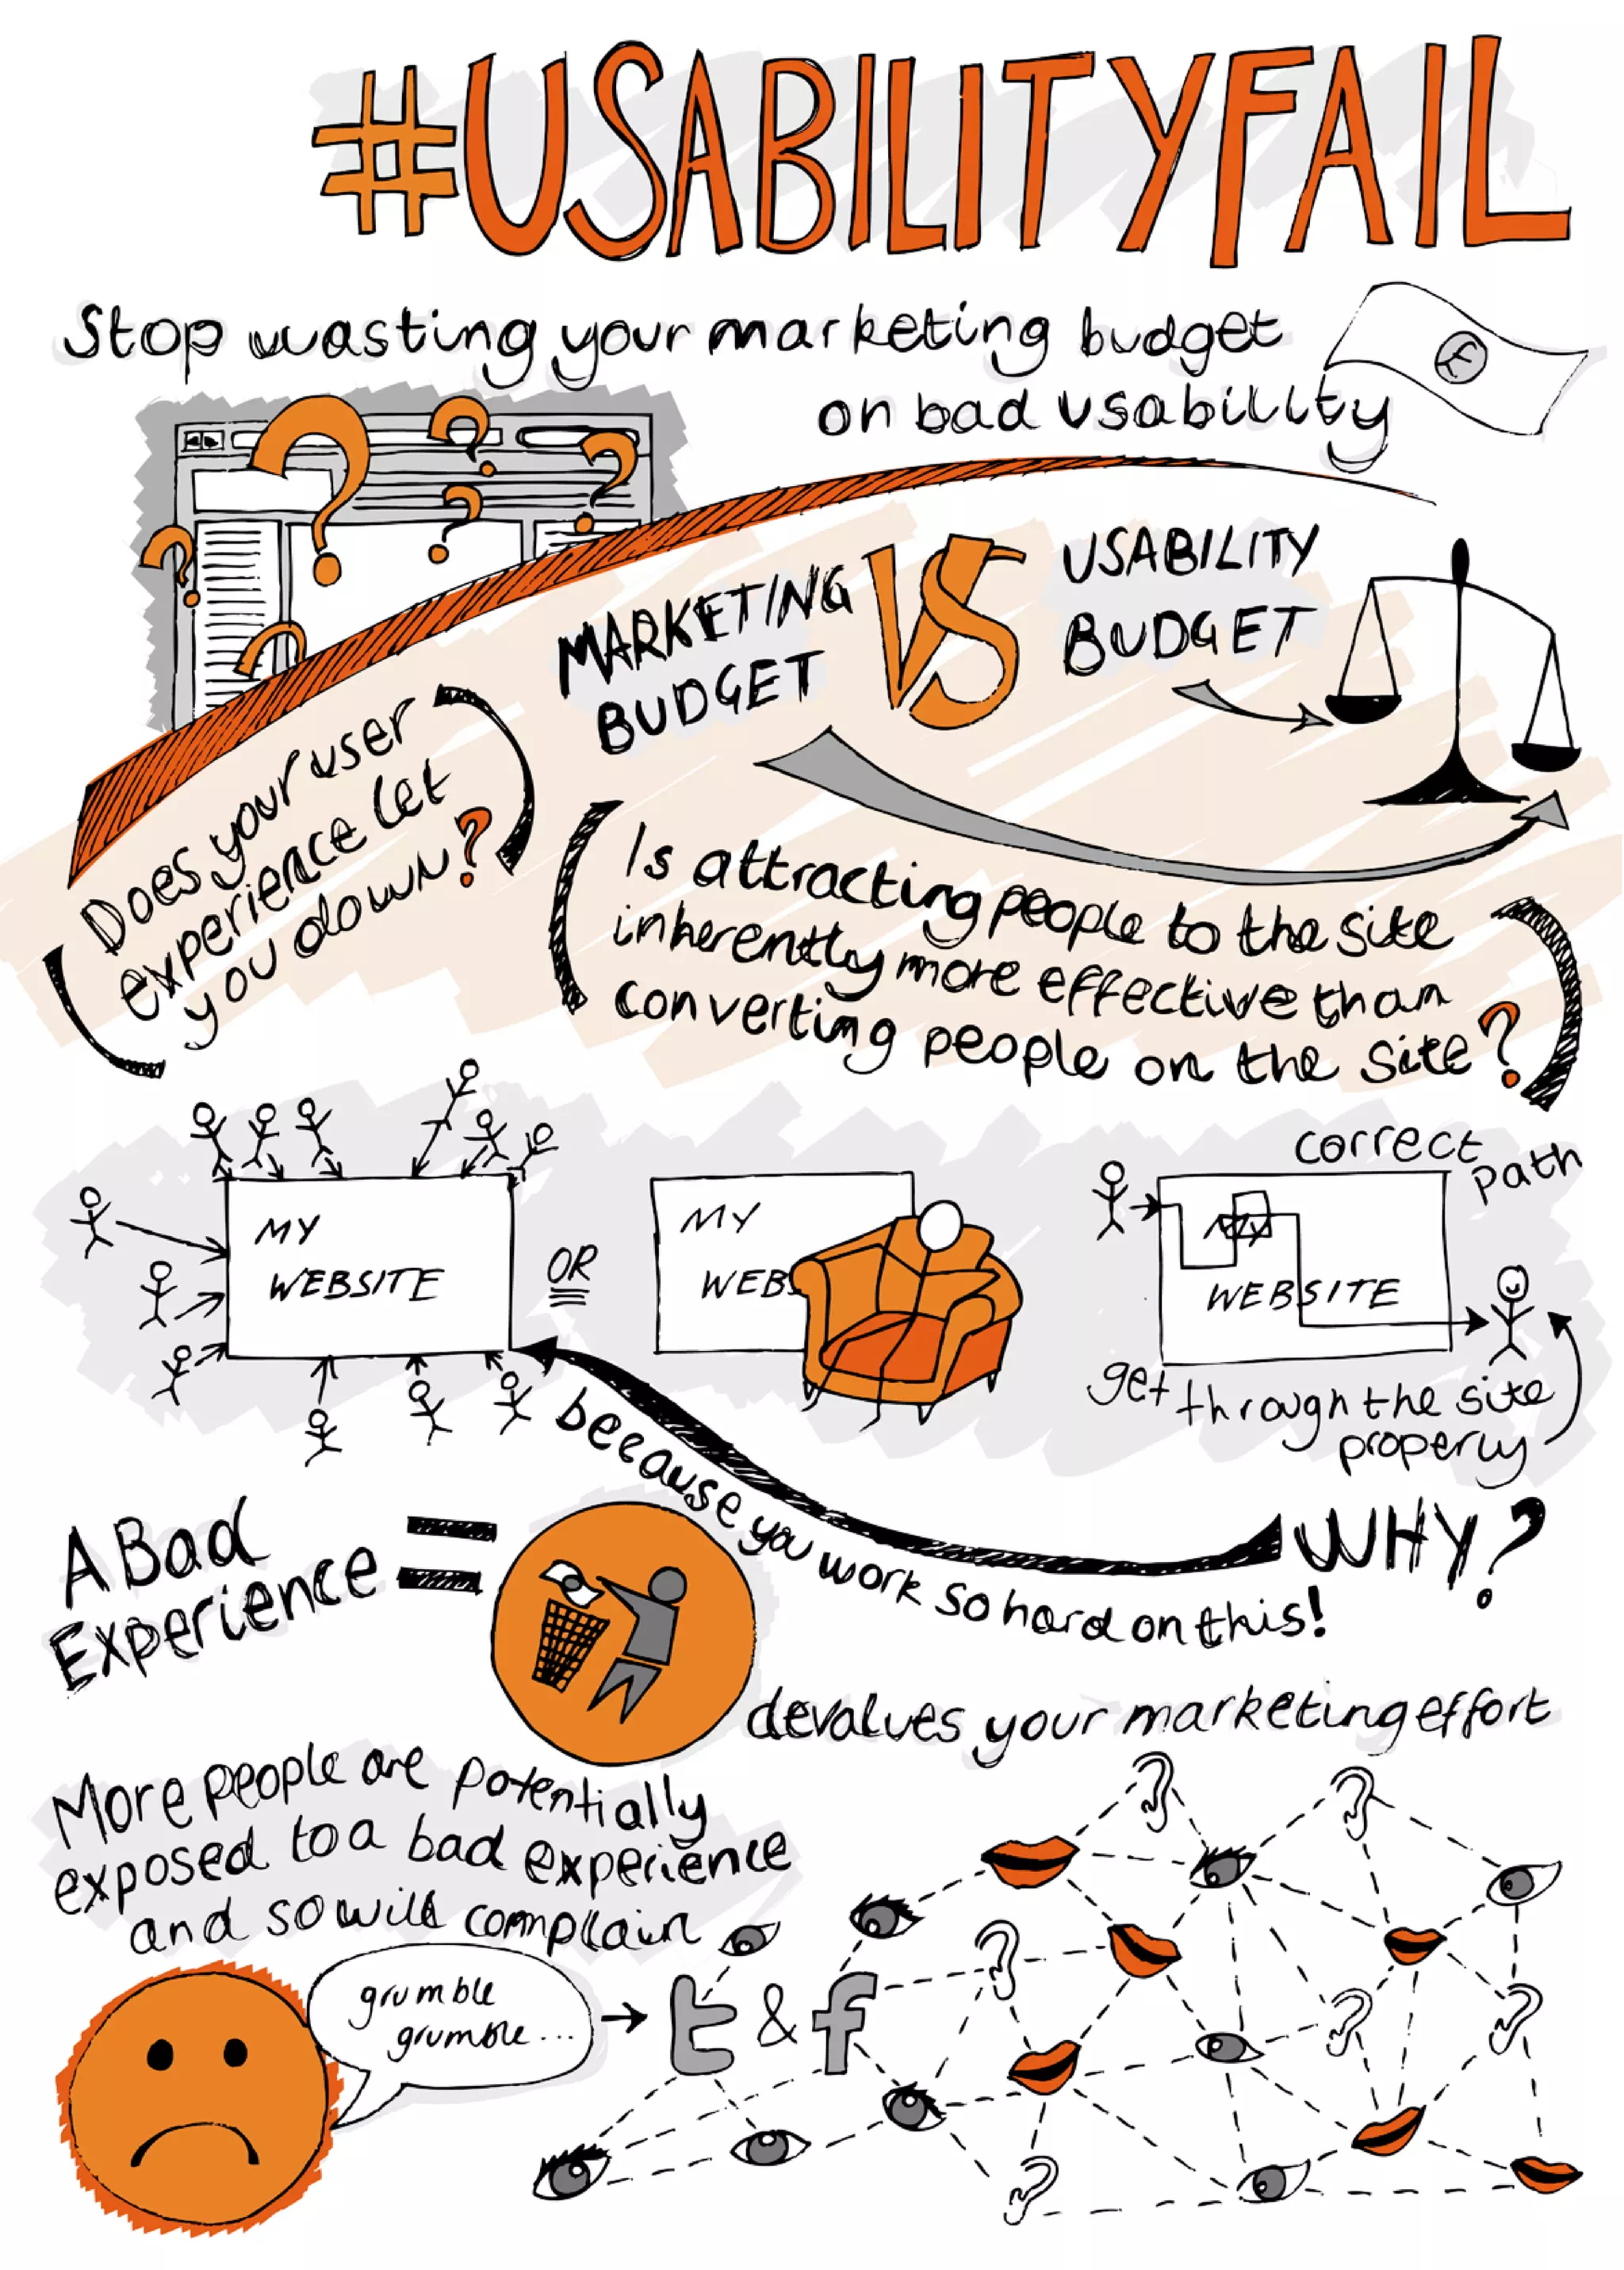 #USABILITYFAIL
Stop wasting your marketing budget
on bad usability
MARKETING
BUDGET
VS
USABILITY
BUDGET
Does your user
experience let
you down?
Is attracting people to the site
inherently more effective than
converting people on the site?
MY
WEBSITE
OR
MY
WEBS
correct
path
MY
WEBSITE
get through the site
properly
WHY?
because you work so hard on this!
A Bad
Experience =
devalues your marketing effort
More people are potentially
exposed to a bad experience
and so will complain
grumble
grumble...
t & f